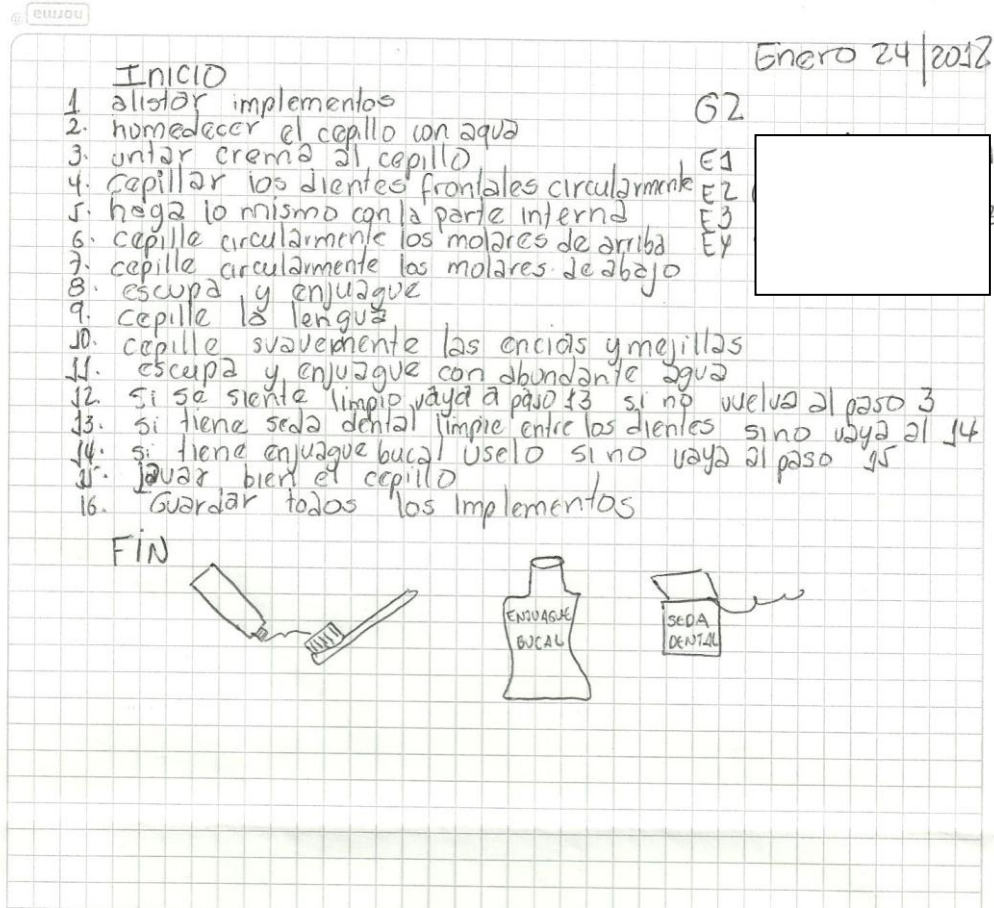 norma
Enero 24/2012
Inicio
G2
1 alistar implementos
2. homedecer el cepillo con agua
3. untar crema al cepillo
E1
4. cepillar los dientes frontales circularmente
E2
5. haga lo mismo con la parte interna
E3
6. cepille circularmente los molares de arriba
E4
7. cepille circularmente los molares de abajo
8. escupa y enjuague
9. cepille la lengua
10. cepille suavemente las encias y mejillas
11. escupa y enjuague con abundante agua
12. si se siente limpio vaya a paso 13 si no vuelva al paso 3
13. si tiene seda dental limpie entre los dientes sino vaya al 14
14. si tiene enjuague bucal uselo si no vaya al paso 15
15. lavar bien el cepillo
16. Guardar todos los implementos
FIN
ENJUAGUE
BUCAL
SEDA
DENTAL